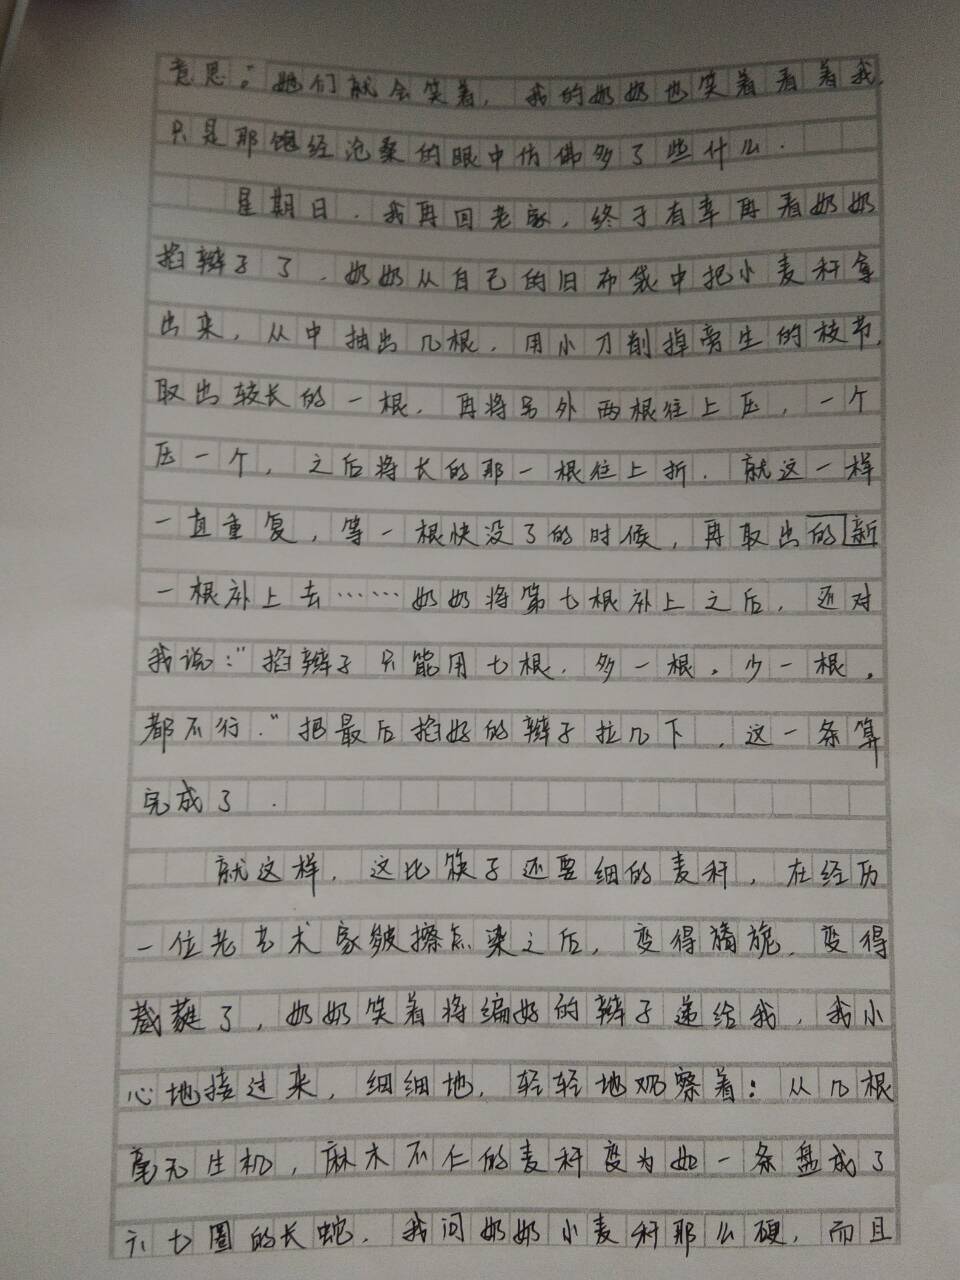 意思。"她们就会笑着，我的奶奶也笑着看着我，
只是那饱经沧桑的眼中仿佛多了些什么．
星期日．我再回老家，终于有幸再看奶奶
掐辫子了．奶奶从自己的旧布袋中把小麦秆拿
出来，从中抽出几根．用小刀削掉旁生的枝节，
取出较长的一根．再将另外两根往上压，一个
压一个，之后将长的那一根往上折．就这一样
一直重复，等一根快没了的时候，再取出的新
一根补上去……奶奶将第七根补上之后，还对
我说："掐辫子只能用七根．多一根。少一根，
都不行．"把最后掐好的辫子拉几下，这一条算
完成了．
就这样．这比筷子还要细的麦秆，在经历
一位老艺术家皴擦点染之后，变得旖旎，变得
葳蕤了，奶奶笑着将编好的辫子递给我，我小
心地接过来，细细地，轻轻地观察着：从几根
毫无生机，麻木不仁的麦秆变为如一条盘成了
六七圈的长蛇．我问奶奶小麦秆那么硬，而且